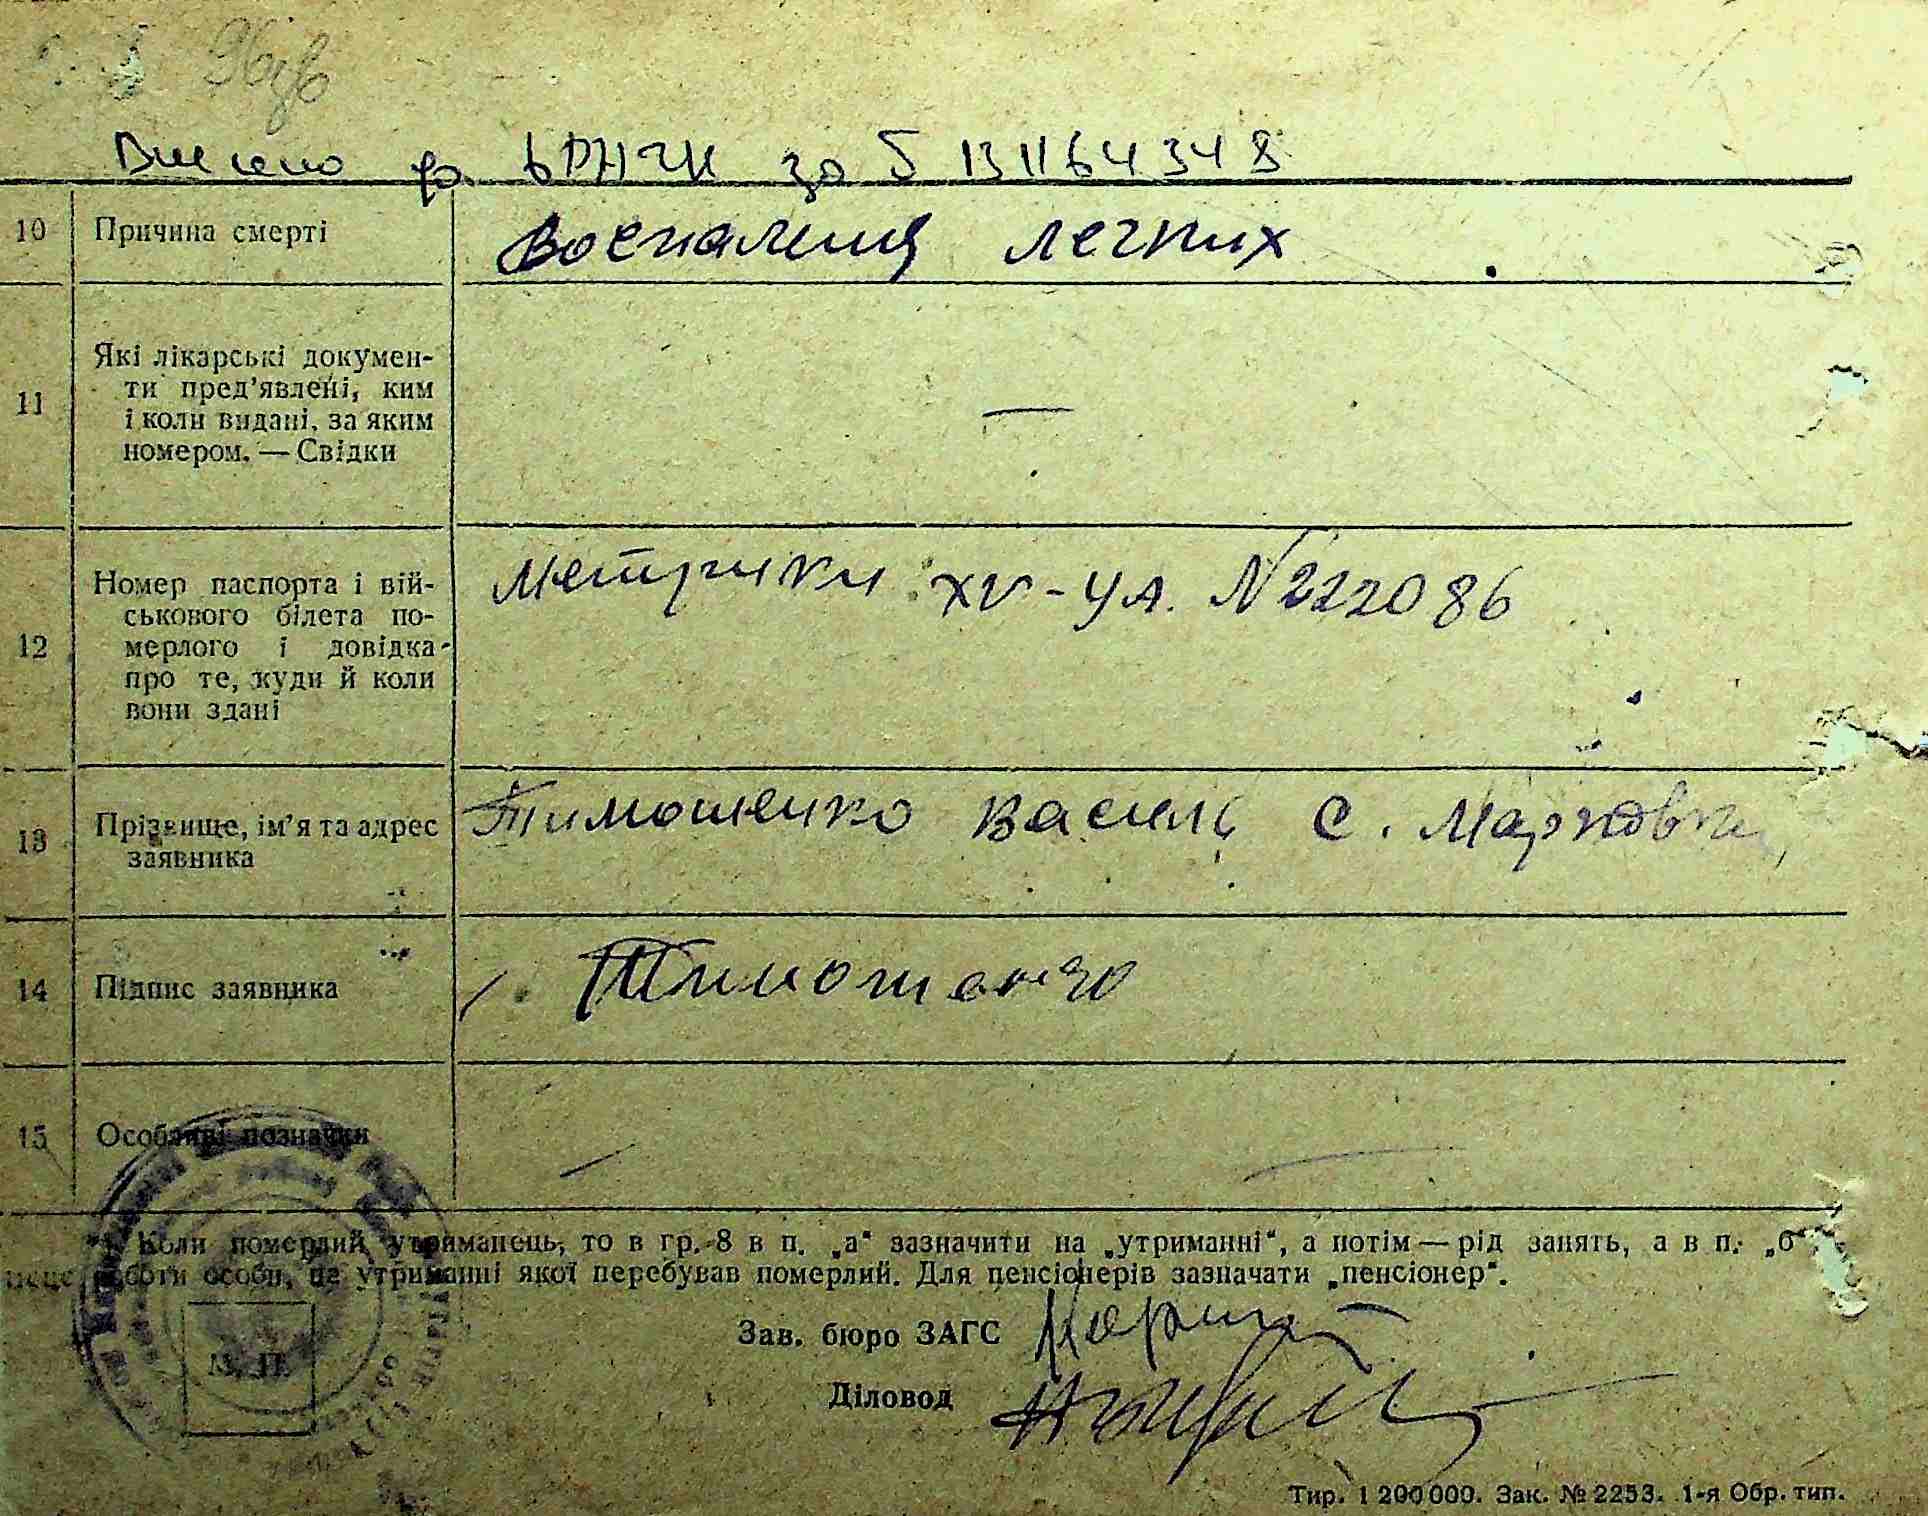 Внесено до ДРАЦС за № 131164348
10 Причина смерті Воспаления легких
11 Які лікарські докумен-
ти пред'явлені, ким
і коли видані, за яким
номером. — Свідки —
12 Номер паспорта і вій- метрики ХV-УА. N222086
ськового білета по-
мерлого і довідка
про те, куди й коли
вони здані
13 Прізвище, ім'я та адрес Тимошенко Василь С. Марковка
заявника
14 Підпис заявника Тимошенко
15 Особливі позначки —
Коли померлий утриманець, то в гр. 8 в п. „а“ зазначити на „утриманні“, а потім — рід занять, а в п. „б“
роботи особи, на утриманні якої перебував померлий. Для пенсіонерів зазначати „пенсіонер“.
Зав. бюро ЗАГС
М. П.
Діловод
Тир. 1 200 000. Зак. № 2253. 1-я Обр. тип.